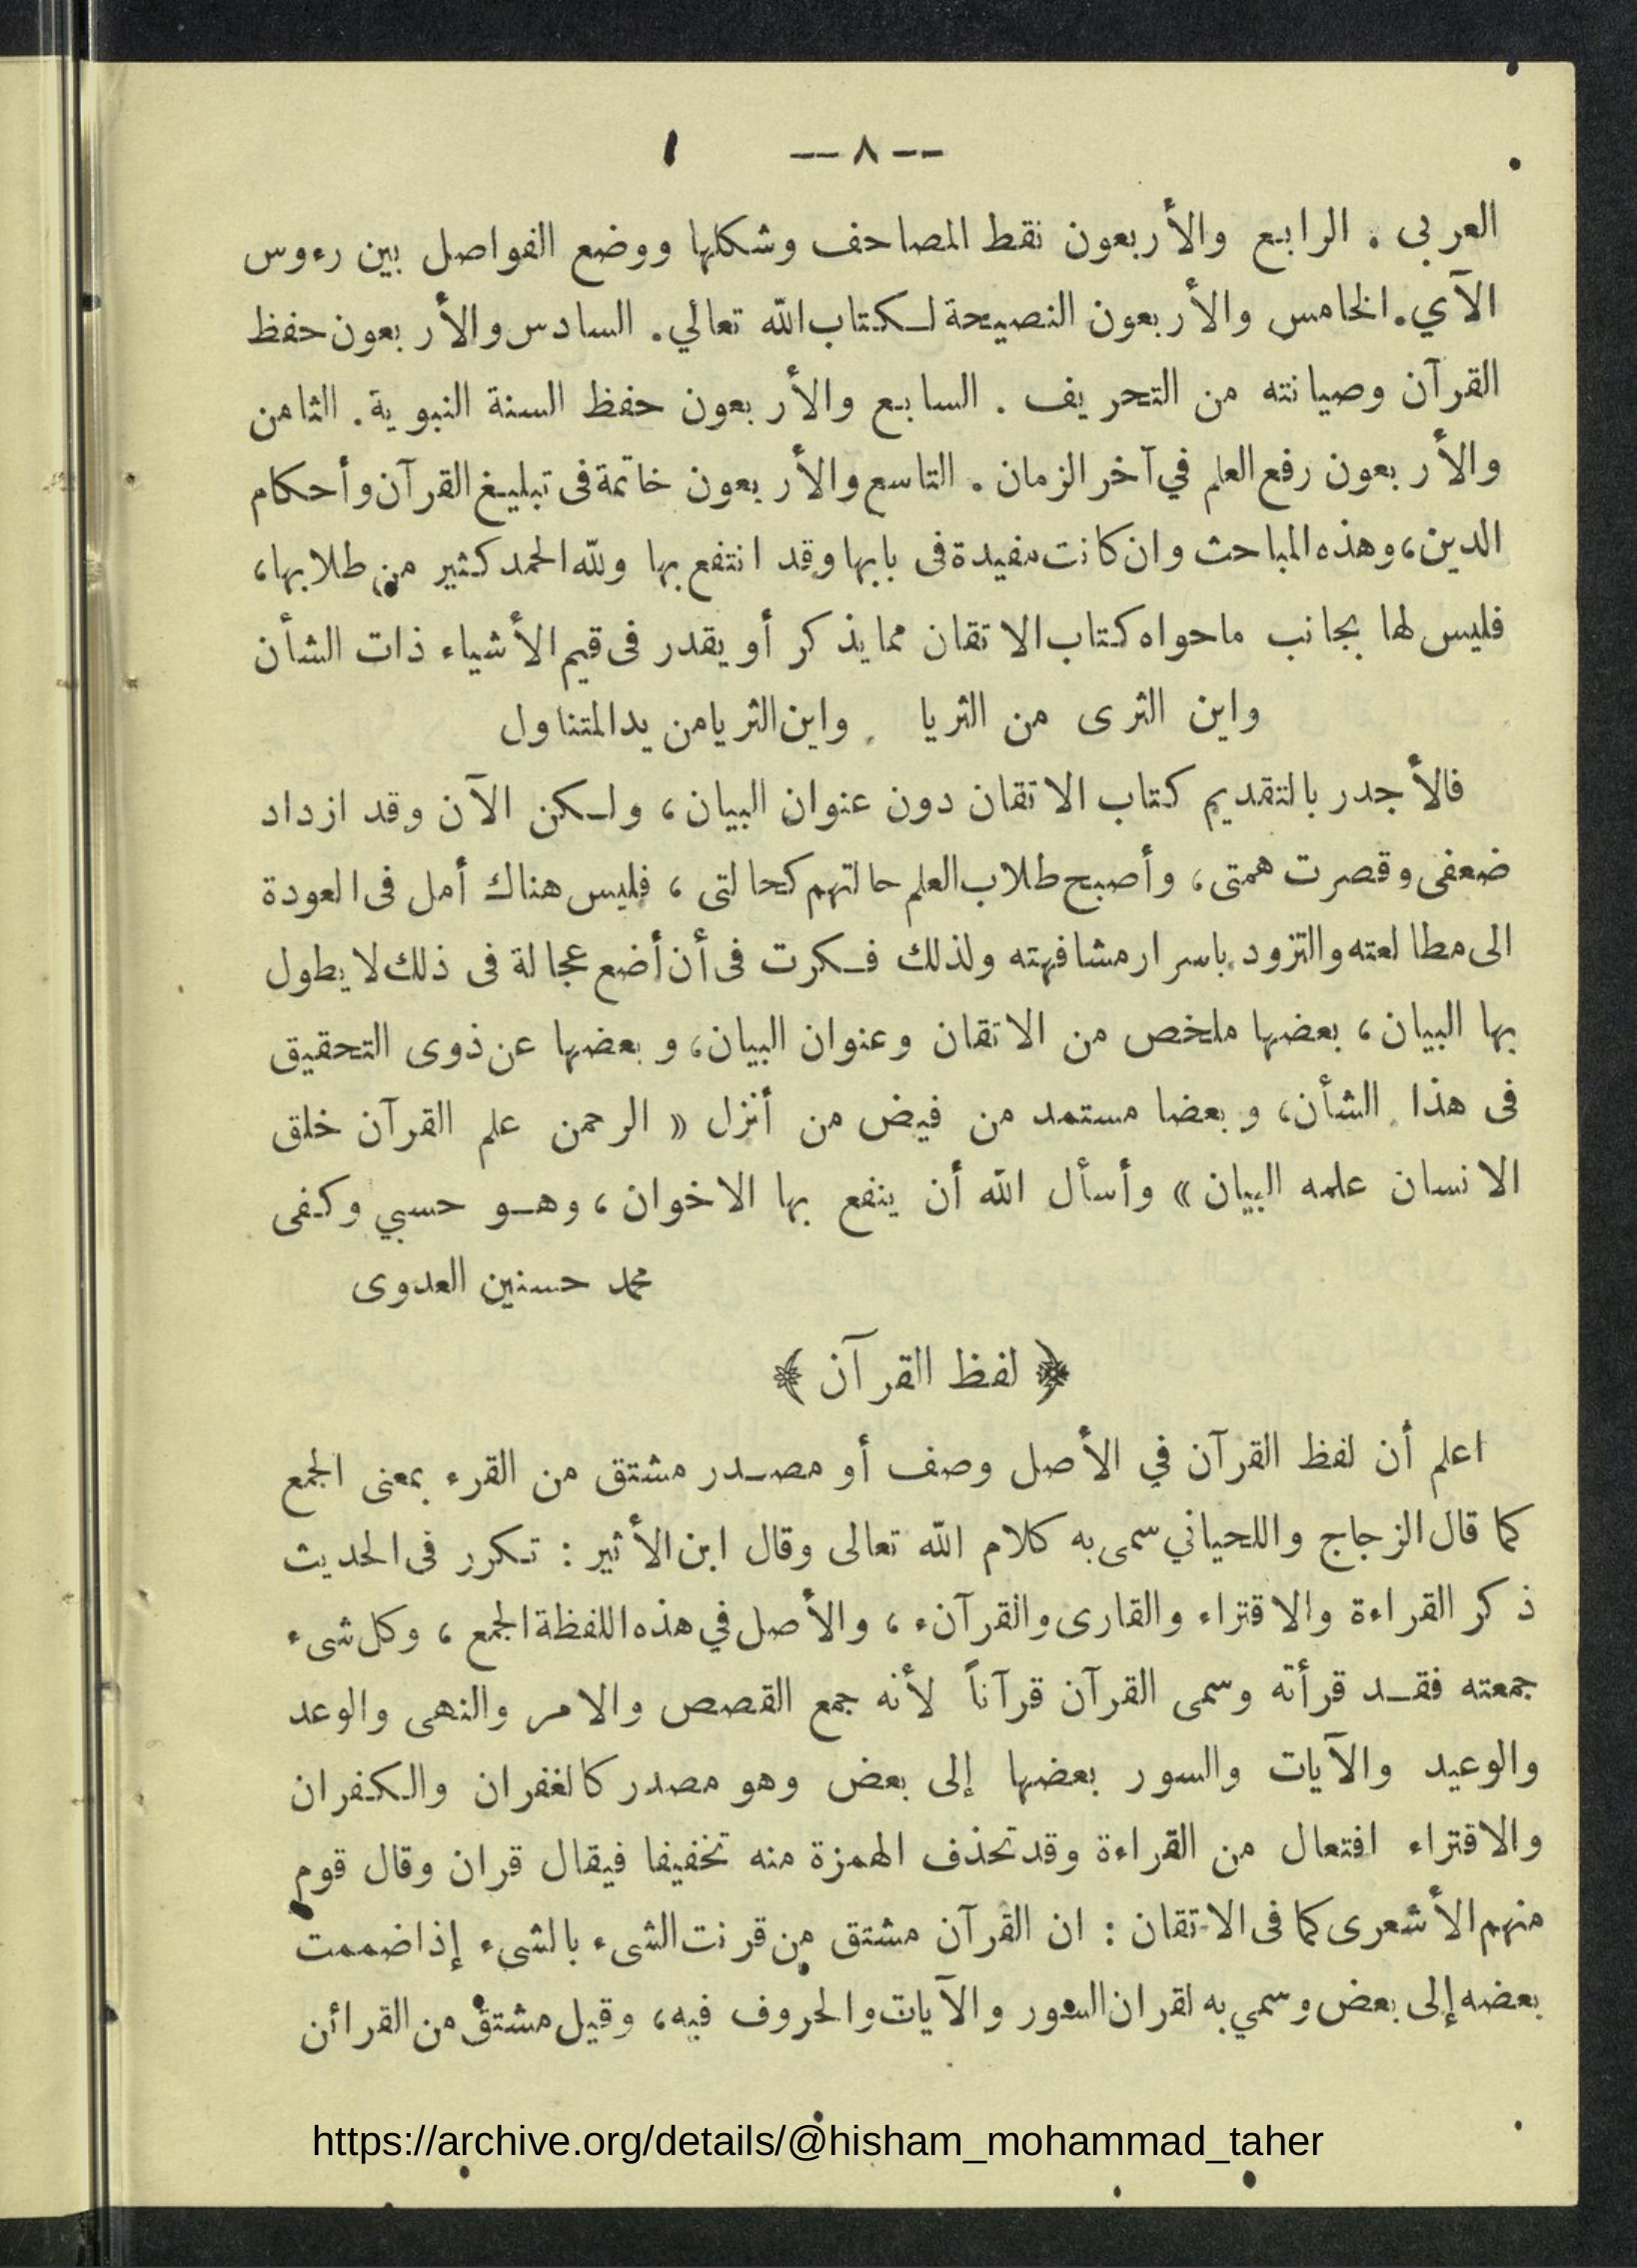 — ٨ —
العربى . الرابع والأربعون نقط المصاحف وشكلها ووضع الفواصل بين رءوس
الآي. الخامس والأربعون النصيحة لكتاب الله تعالي. السادس والأربعون حفظ
القرآن وصيانته من التحريف . السابع والأربعون حفظ السنة النبوية. الثامن
والأربعون رفع العلم في آخر الزمان . التاسع والأربعون خاتمة فى تبليغ القرآن وأحكام
الدين، وهذه المباحث وان كانت مفيدة فى بابها وقد انتفع بها ولله الحمد كثير من طلابها،
فليس لها بجانب ماحواه كتاب الاتقان مما يذكر أو يقدر فى قيم الأشياء ذات الشأن
واين الثرى من الثريا واين الثريا من يد المتناول
فالأجدر بالتقديم كتاب الاتقان دون عنوان البيان، ولكن الآن وقد ازداد
ضعفى وقصرت همتى، وأصبح طلاب العلم حالتهم كحالتى ، فليس هناك أمل فى العودة
الى مطالعته والتزود باسرار مشافهته ولذلك فكرت فى أن أضع عجالة فى ذلك لا يطول
بها البيان، بعضها ملخص من الاتقان وعنوان البيان، وبعضها عن ذوى التحقيق
فى هذا الشأن، وبعضا مستمد من فيض من أنزل « الرحمن علم القرآن خلق
الانسان علمه البيان » وأسأل الله أن ينفع بها الاخوان ، وهو حسبي وكفى
محمد حسنين العدوى
﴿ لفظ القرآن ﴾
اعلم أن لفظ القرآن في الأصل وصف أو مصدر مشتق من القرء بمعنى الجمع
كما قال الزجاج واللحياني سمى به كلام الله تعالى وقال ابن الأثير : تكرر فى الحديث
ذكر القراءة والاقتراء والقارى والقرآنء ، والأصل في هذه اللفظة الجمع ، وكل شىء
جمعته فقد قرأته وسمى القرآن قرآناً لأنه جمع القصص والامر والنهى والوعد
والوعيد والآيات والسور بعضها إلى بعض وهو مصدر كالغفران والكفران
والاقتراء افتعال من القراءة وقد تحذف الهمزة منه تخفيفا فيقال قران وقال قوم
منهم الأشعرى كما فى الاتقان : ان القرآن مشتق من قرنت الشىء بالشىء إذا ضممت
بعضه إلى بعض وسمي به لقران السور والآيات والحروف فيه، وقيل مشتق من القرائن
https://archive.org/details/@hisham_mohammad_taher